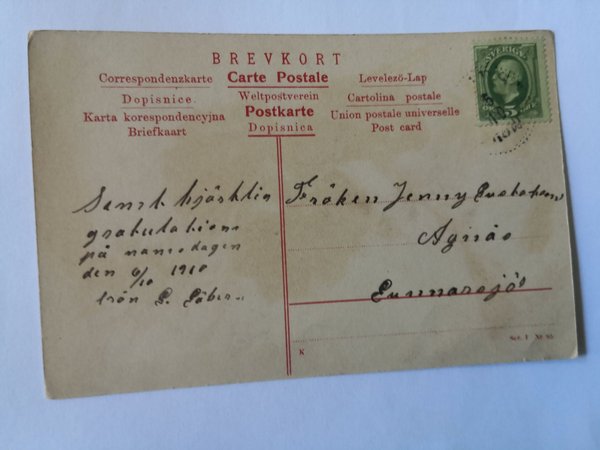 BREVKORT
Correspondenzkarte Carte Postale Levelező-Lap
Dopisnice Weltpostverein Cartolina postale
Karta korespondencyjna Postkarte Union postale universelle
Briefkaart Dopisnica Post card
SVERIGE
5
Fröken Jenny
Agnäs
Gunnarsjö
gratulation
på namsdagen
den 6/10 1910
från E.
K
Ser. 1 Nr